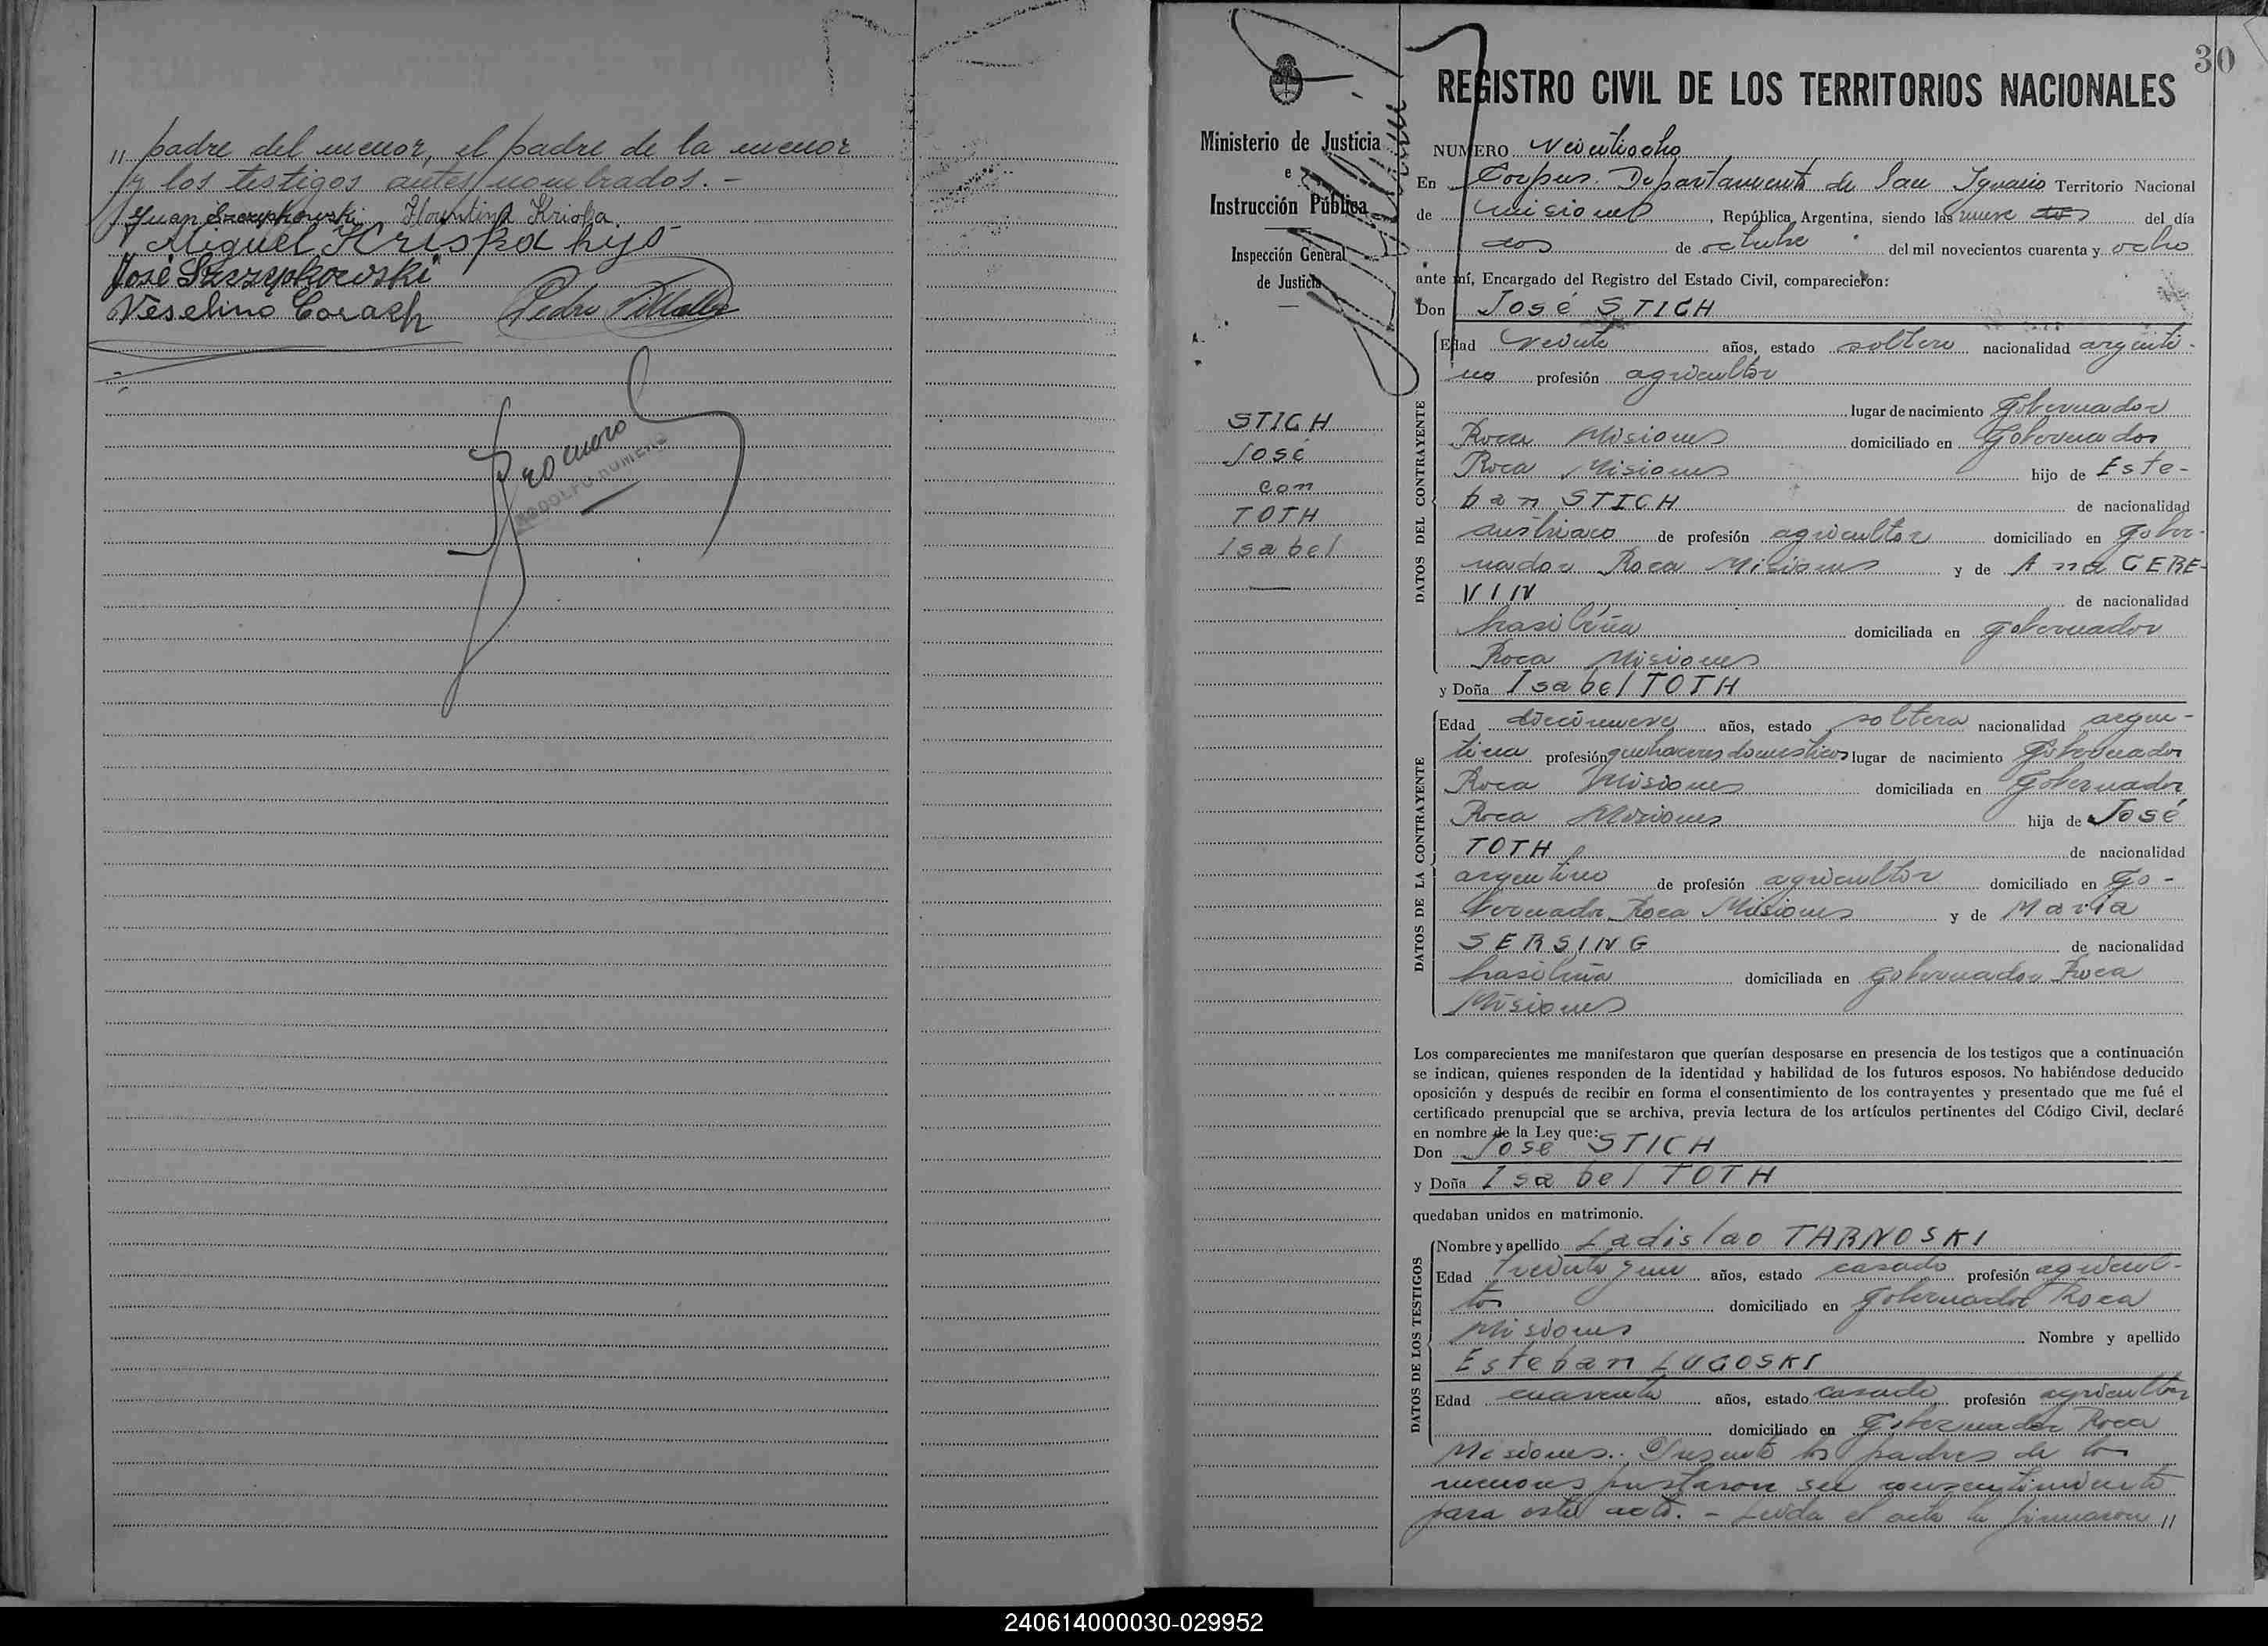 " padre del menor, el padre de la menor
y los testigos antes nombrados. -
Juan Szczypkowski Florentina Kriska
Miguel Kriska hijo
José Szczypkowski
Veselino Corach Pedro
Romero
ADOLFO ROMERO
30
Ministerio de Justicia
e
Instrucción Pública
Inspección General
de Justicia
STICH
José
con
TOTH
Isabel
REGISTRO CIVIL DE LOS TERRITORIOS NACIONALES
NUMERO Veintiocho
En Corpus. Departamento de San Ignacio Territorio Nacional
de Misiones, República Argentina, siendo las nueve dos del día
dos de octubre del mil novecientos cuarenta y ocho
ante mí, Encargado del Registro del Estado Civil, comparecieron:
Don José STICH
DATOS DEL CONTRAYENTE
Edad Veinte años, estado soltero nacionalidad argenti-
no profesión agricultor
lugar de nacimiento Gobernador
Roca Misiones domiciliado en Gobernador
Roca Misiones hijo de Este-
ban STICH de nacionalidad
austriaco de profesión agricultor domiciliado en Gober-
nador Roca Misiones y de Ana CERE-
VIN de nacionalidad
brasileña domiciliada en gobernador
Roca Misiones
y Doña Isabel TOTH
DATOS DE LA CONTRAYENTE
Edad diecinueve años, estado soltera nacionalidad argen-
tina profesión quehaceres domesticos lugar de nacimiento Gobernador
Roca Misiones domiciliada en Gobernador
Roca Misiones hija de José
TOTH de nacionalidad
argentino de profesión agricultor domiciliado en Go-
bernador Roca Misiones y de Maria
SERSING de nacionalidad
brasileña domiciliada en gobernador Roca
Misiones
Los comparecientes me manifestaron que querían desposarse en presencia de los testigos que a continuación
se indican, quienes responden de la identidad y habilidad de los futuros esposos. No habiéndose deducido
oposición y después de recibir en forma el consentimiento de los contrayentes y presentado que me fué el
certificado prenupcial que se archiva, previa lectura de los artículos pertinentes del Código Civil, declaré
en nombre de la Ley que:
Don José STICH
y Doña Isabel TOTH
quedaban unidos en matrimonio.
DATOS DE LOS TESTIGOS
Nombre y apellido Ladislao TARNOSKI
Edad treinta y un años, estado casado profesión agricul-
tor domiciliado en Gobernador Roca
Misiones Nombre y apellido
Esteban LUGOSKI
Edad cuarenta años, estado casado profesión agricultor
domiciliado en Gobernador Roca
Misiones. Presente los padres de los
menores prestaron su consentimiento
para este acto. - Leida el acta la firmaron "
240614000030-029952